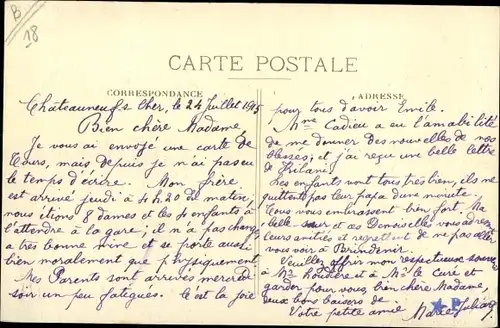 B
18
CARTE POSTALE
CORRESPONDANCE
ADRESSE
Châteauneuf s Cher, le 24 Juillet 1915
Bien chère Madame,
Je vous ai envoyé une carte de
Tours, mais depuis je n'ai pas eu
le temps d'écrire. Mon frère
est arrivé jeudi à 4h.20 du matin,
nous étions 8 dames et les 4 enfants à
l'attendre à la gare; il n'a pas changé,
a très bonne mine et se porte aussi
bien moralement que physiquement
Mes Parents sont arrivés mercredi
soir un peu fatigués. C'est la joie
pour tous d'avoir Emile.
Mme Cadieu a eu l'amabilité
de me donner des nouvelles de nos
blessés; et j'ai reçu une belle lettre
de
Les enfants vont tous très bien, ils ne
quittent pas leur papa d'une minute.
Tous vous embrassent bien fort. Ma
belle sœur et ses Demoiselles vous adressent
leurs amitiés et regrettent de ne pas aller
vous voir à
Veuillez offrir mon respectueux souvenir
à Me et à Mr le Curé et
garder pour vous bien chère Madame,
deux bons baisers de
Votre petite amie Marie